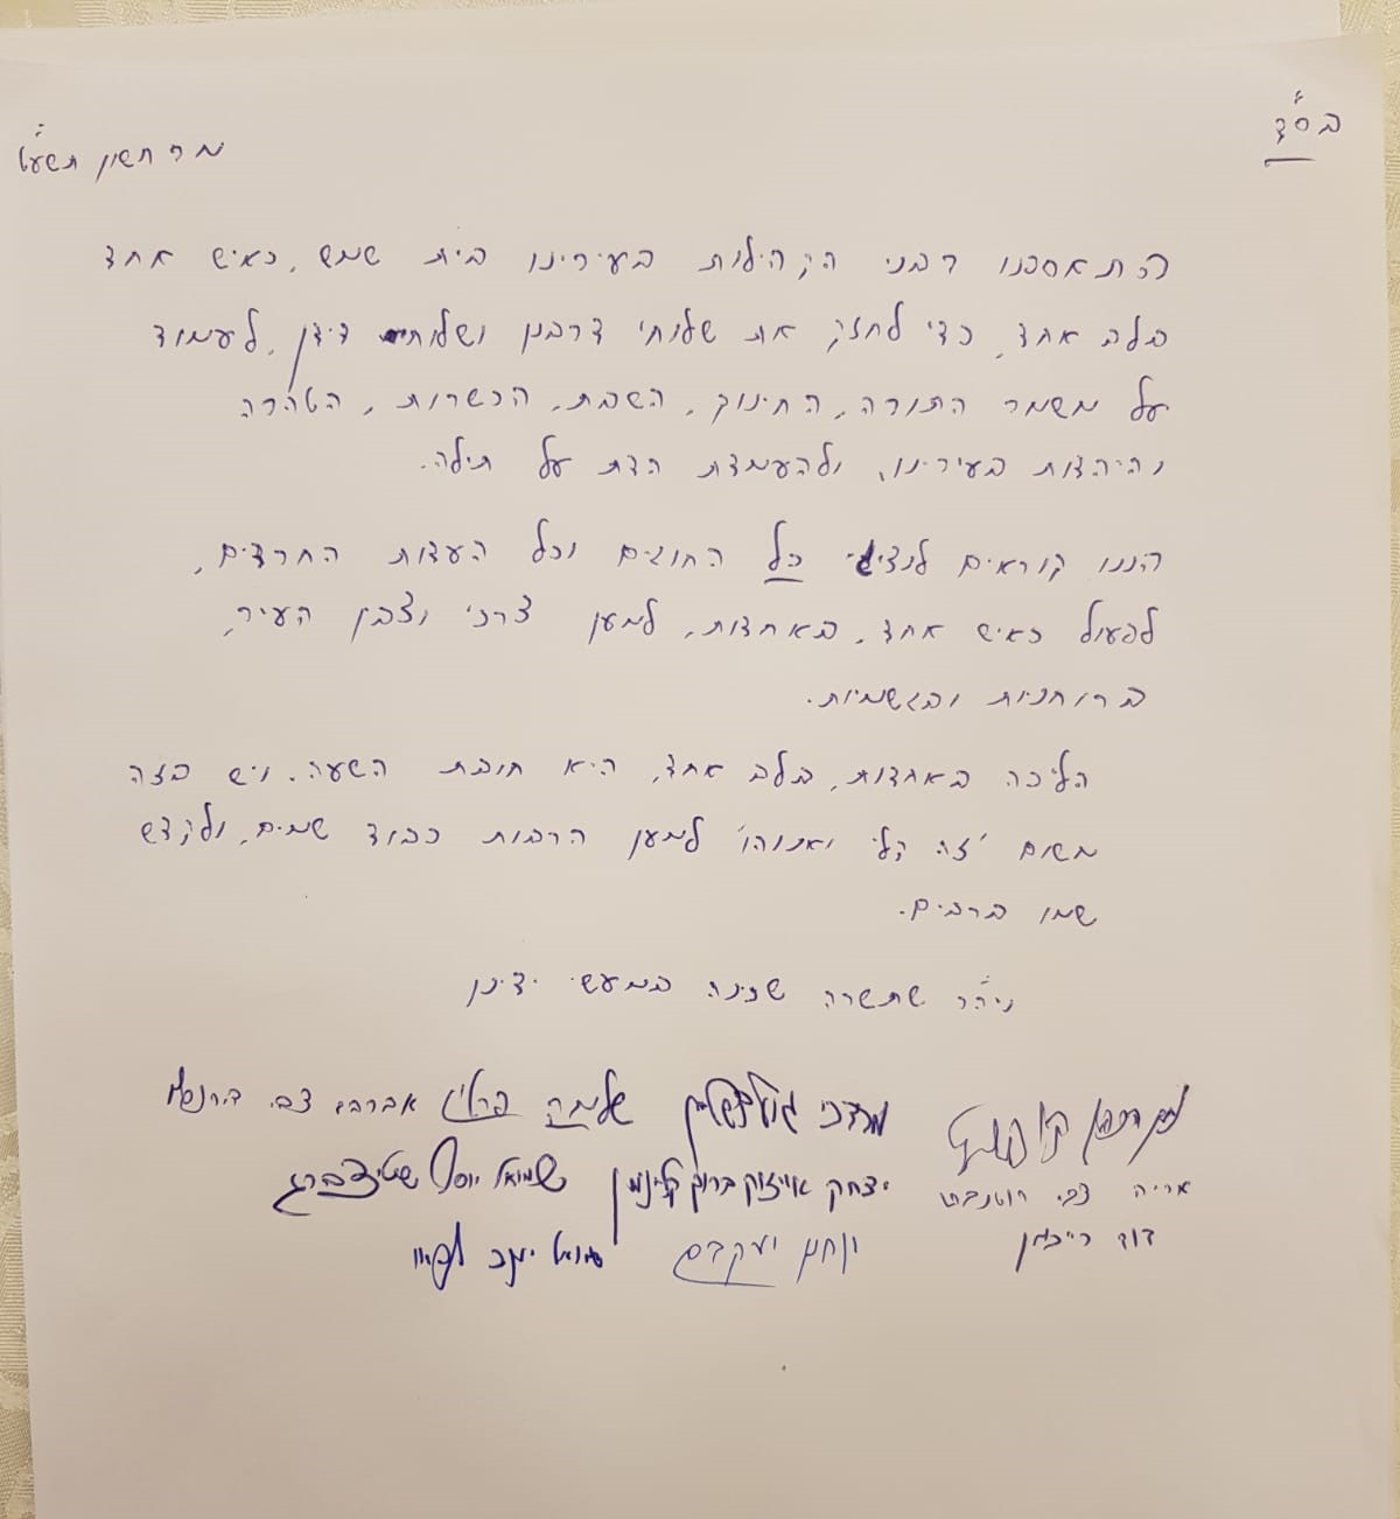 בס"ד
מר חשון תשע"ט
התאספנו רבני הקהילות בעירינו בית שמש, כאיש אחד
בלב אחד, כדי לחזק את שלוחי דרבנן ושלוחי דידן, לעמוד
על משמר התורה, החינוך, השבת, הכשרות, הטהרה
והיהדות בעירינו, ולהעמדת הדת על תילה.
הננו קוראים לנציגי כל החוגים וכל העדות החרדים,
לפעול כאיש אחד, באחדות, למען צרכי וצביון העיר,
ברוחניות ובגשמיות.
הליכה באחדות, בלב אחד, היא חובת השעה. ויש בזה
משום 'זה קלי ואנוהו' למען הרבות כבוד שמים, ולקדש
שמו ברבים.
ויה"ר שתשרה שכינה במעשי ידינו
מרדכי גולדשטיין שלמה פרלין אברהם צבי
אריה צבי יצחק אייזיק ברוך קליינמן שמואל יוסף שטיצברג
דוד רייכמן שמואל יעקב